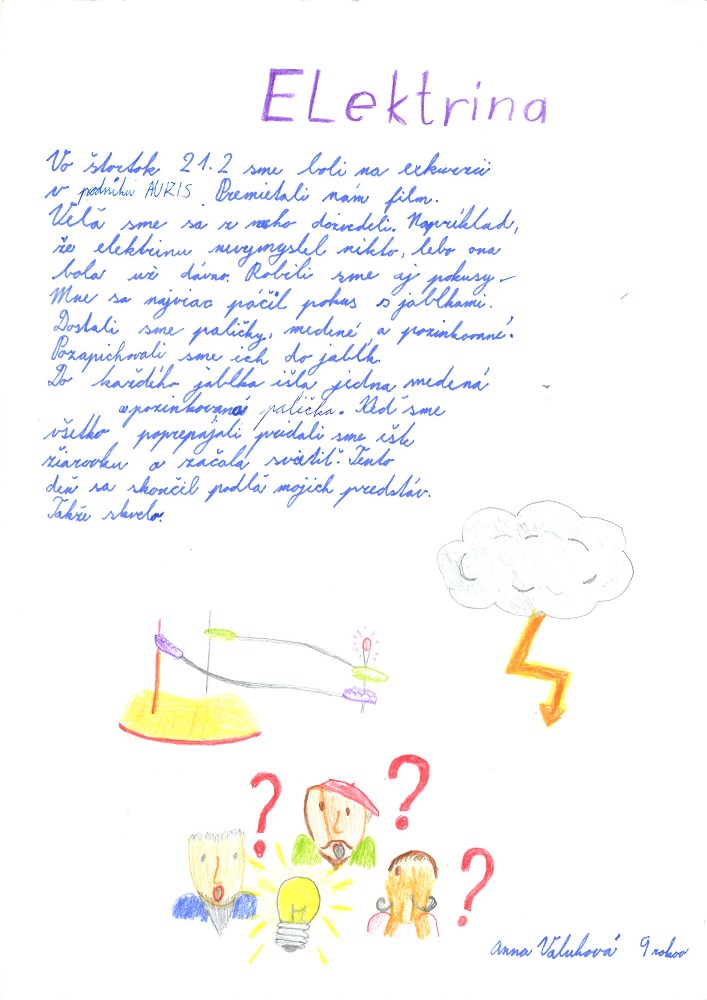 ELektrina
Vo štvrtok 21.2 sme boli na exkurzii
v podniku AURIS. Premietali nám film.
Veľa sme sa z neho dozvedeli. Napríklad,
že elektrinu nevymyslel nikto, lebo ona
bola už dávno. Robili sme aj pokusy.
Mne sa najviac páčil pokus s jablkami.
Dostali sme paličky, medené a pozinkované.
Pozapichovali sme ich do jabĺk.
Do každého jablka išla jedna medená
a pozinkovaná palička. Keď sme
všetko poprepájali pridali sme ešte
žiarovku a začala svietiť. Tento
deň sa skončil podľa mojich predstáv.
Takže skvelo.
? ? ?
Anna Váluhová 9 rokov